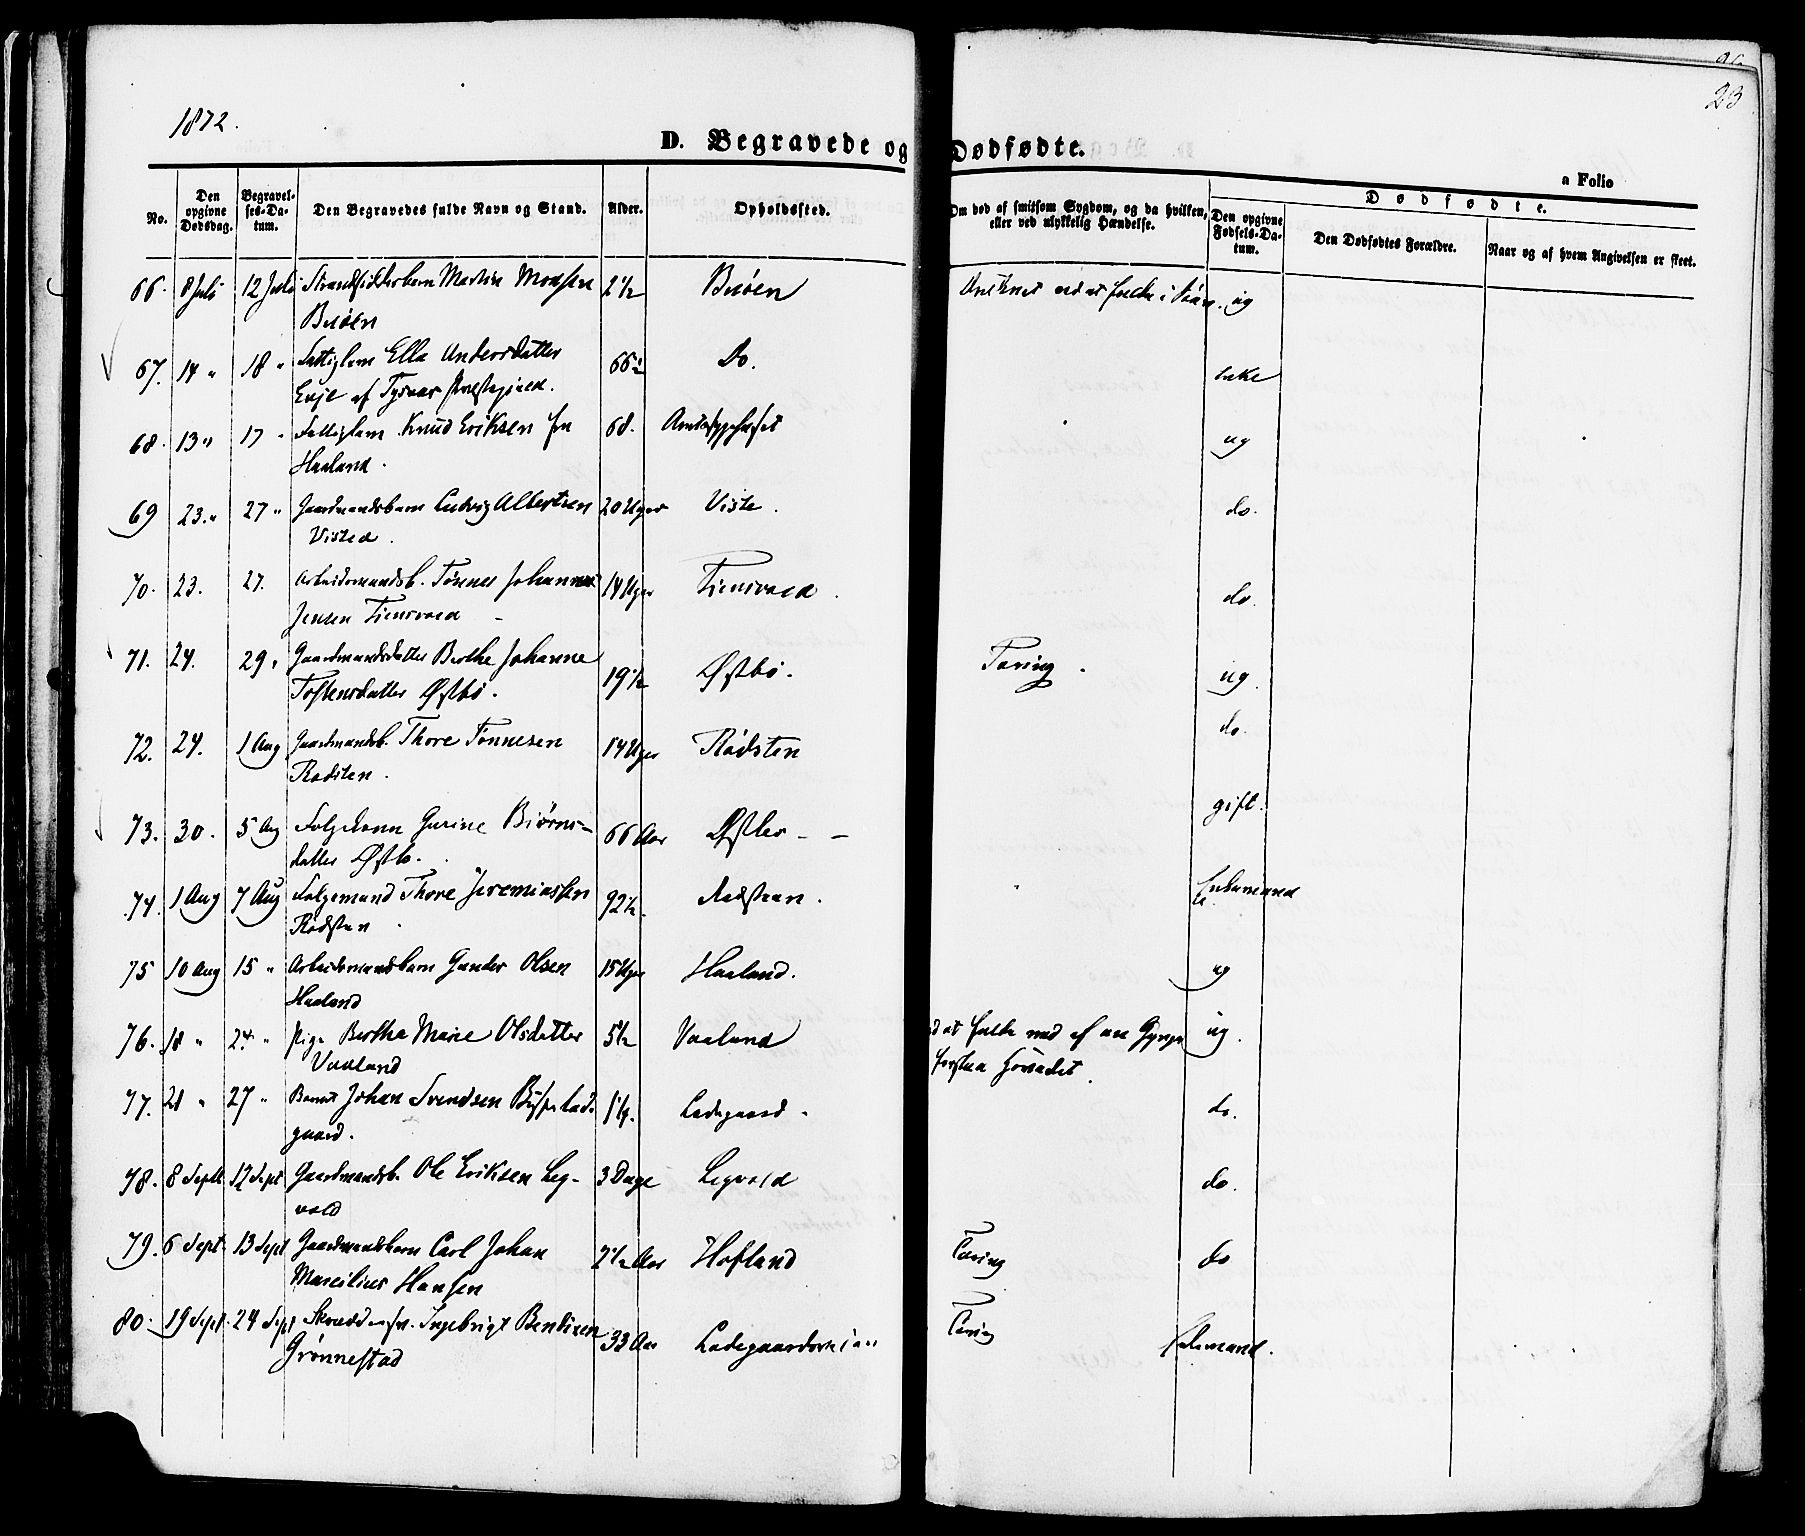 1872.
23
D. Begravede og Dødfødte.
a Folio
No.
Den opgivne Dødsdag.
Begravelses-Datum.
Den Begravedes fulde Navn og Stand.
Alder.
Opholdssted.
Om død af smitsom Sygdom, og da hvilken, eller ved ulykkelig Hændelse.
Dødfødte.
Den opgivne Fødsels-Datum.
Den Dødfødtes Forældre.
Naar og af hvem Angivelsen er skeet.
66. 8 Juli 12 Juli Strandsidderbarn Martin Monsen 2 1/2 Buøen ved at falde i ug
Buøen
67. 14 " 18 " Fattiglem Ella Andersdatter 66 1/2 Do. enke
af Tysvær Præstegjeld.
68. 13 " 17 " Fattiglem Knud Eriksen fra 68. Amtssygehuset ug
Haaland.
69 23. " 27 " Gaardmandsbarn Ludvig Albertsen 20 Uger Viste. do.
Visted.
70. 23. 27. Arbeidsmandsb. Tønnes Johannes 14 Uger Tiensvold. do.
Jensen Tiensvold
71. 24. 29 " Gaardmandsdatter Berthe Johanne 19 1/2 Østbø. Tæring. ug.
Tostensdatter Østbø.
72. 24. 1 Aug Gaardmandsb. Thore Tønnesen 14 Uger Rødsten do.
Rødsten.
73. 30. 5 Aug Folgekone Gurine Biørns- 66 Aar Østbø gift.
datter Østbø.
74. 1 Aug 7 Aug Folgemand Thore Jeremiassen 92 1/2. Enkemand
Rødsten
75 10 Aug 15 " Arbeidsmandsbarn Gunder Olsen 15 Uger Haaland. ug
Haaland
76. 18 " 24 " Pige Berthe Marie Olsdatter 5 1/2 Vaaland ved at falde ned af en ug.
Vaaland Hovedet.
77. 21 " 27 " Barnet Johan Svendsen Lade- Ladegaard. do.
gaard.
78. 8 Sept 12 Sept Gaardmandsb. Ole Eriksen Leg- 3 Dage Legvold do.
vold
79. 6 Sept 13 Sept Gaardmandsbarn Carl Johan 2 1/2 Aar Hofland Tæring do
Marcilius Hansen
80. 19 Sept. 24 Sept Ingebrigt Bentsen 33 Aar Tæring Enkemand.
Grønnestad